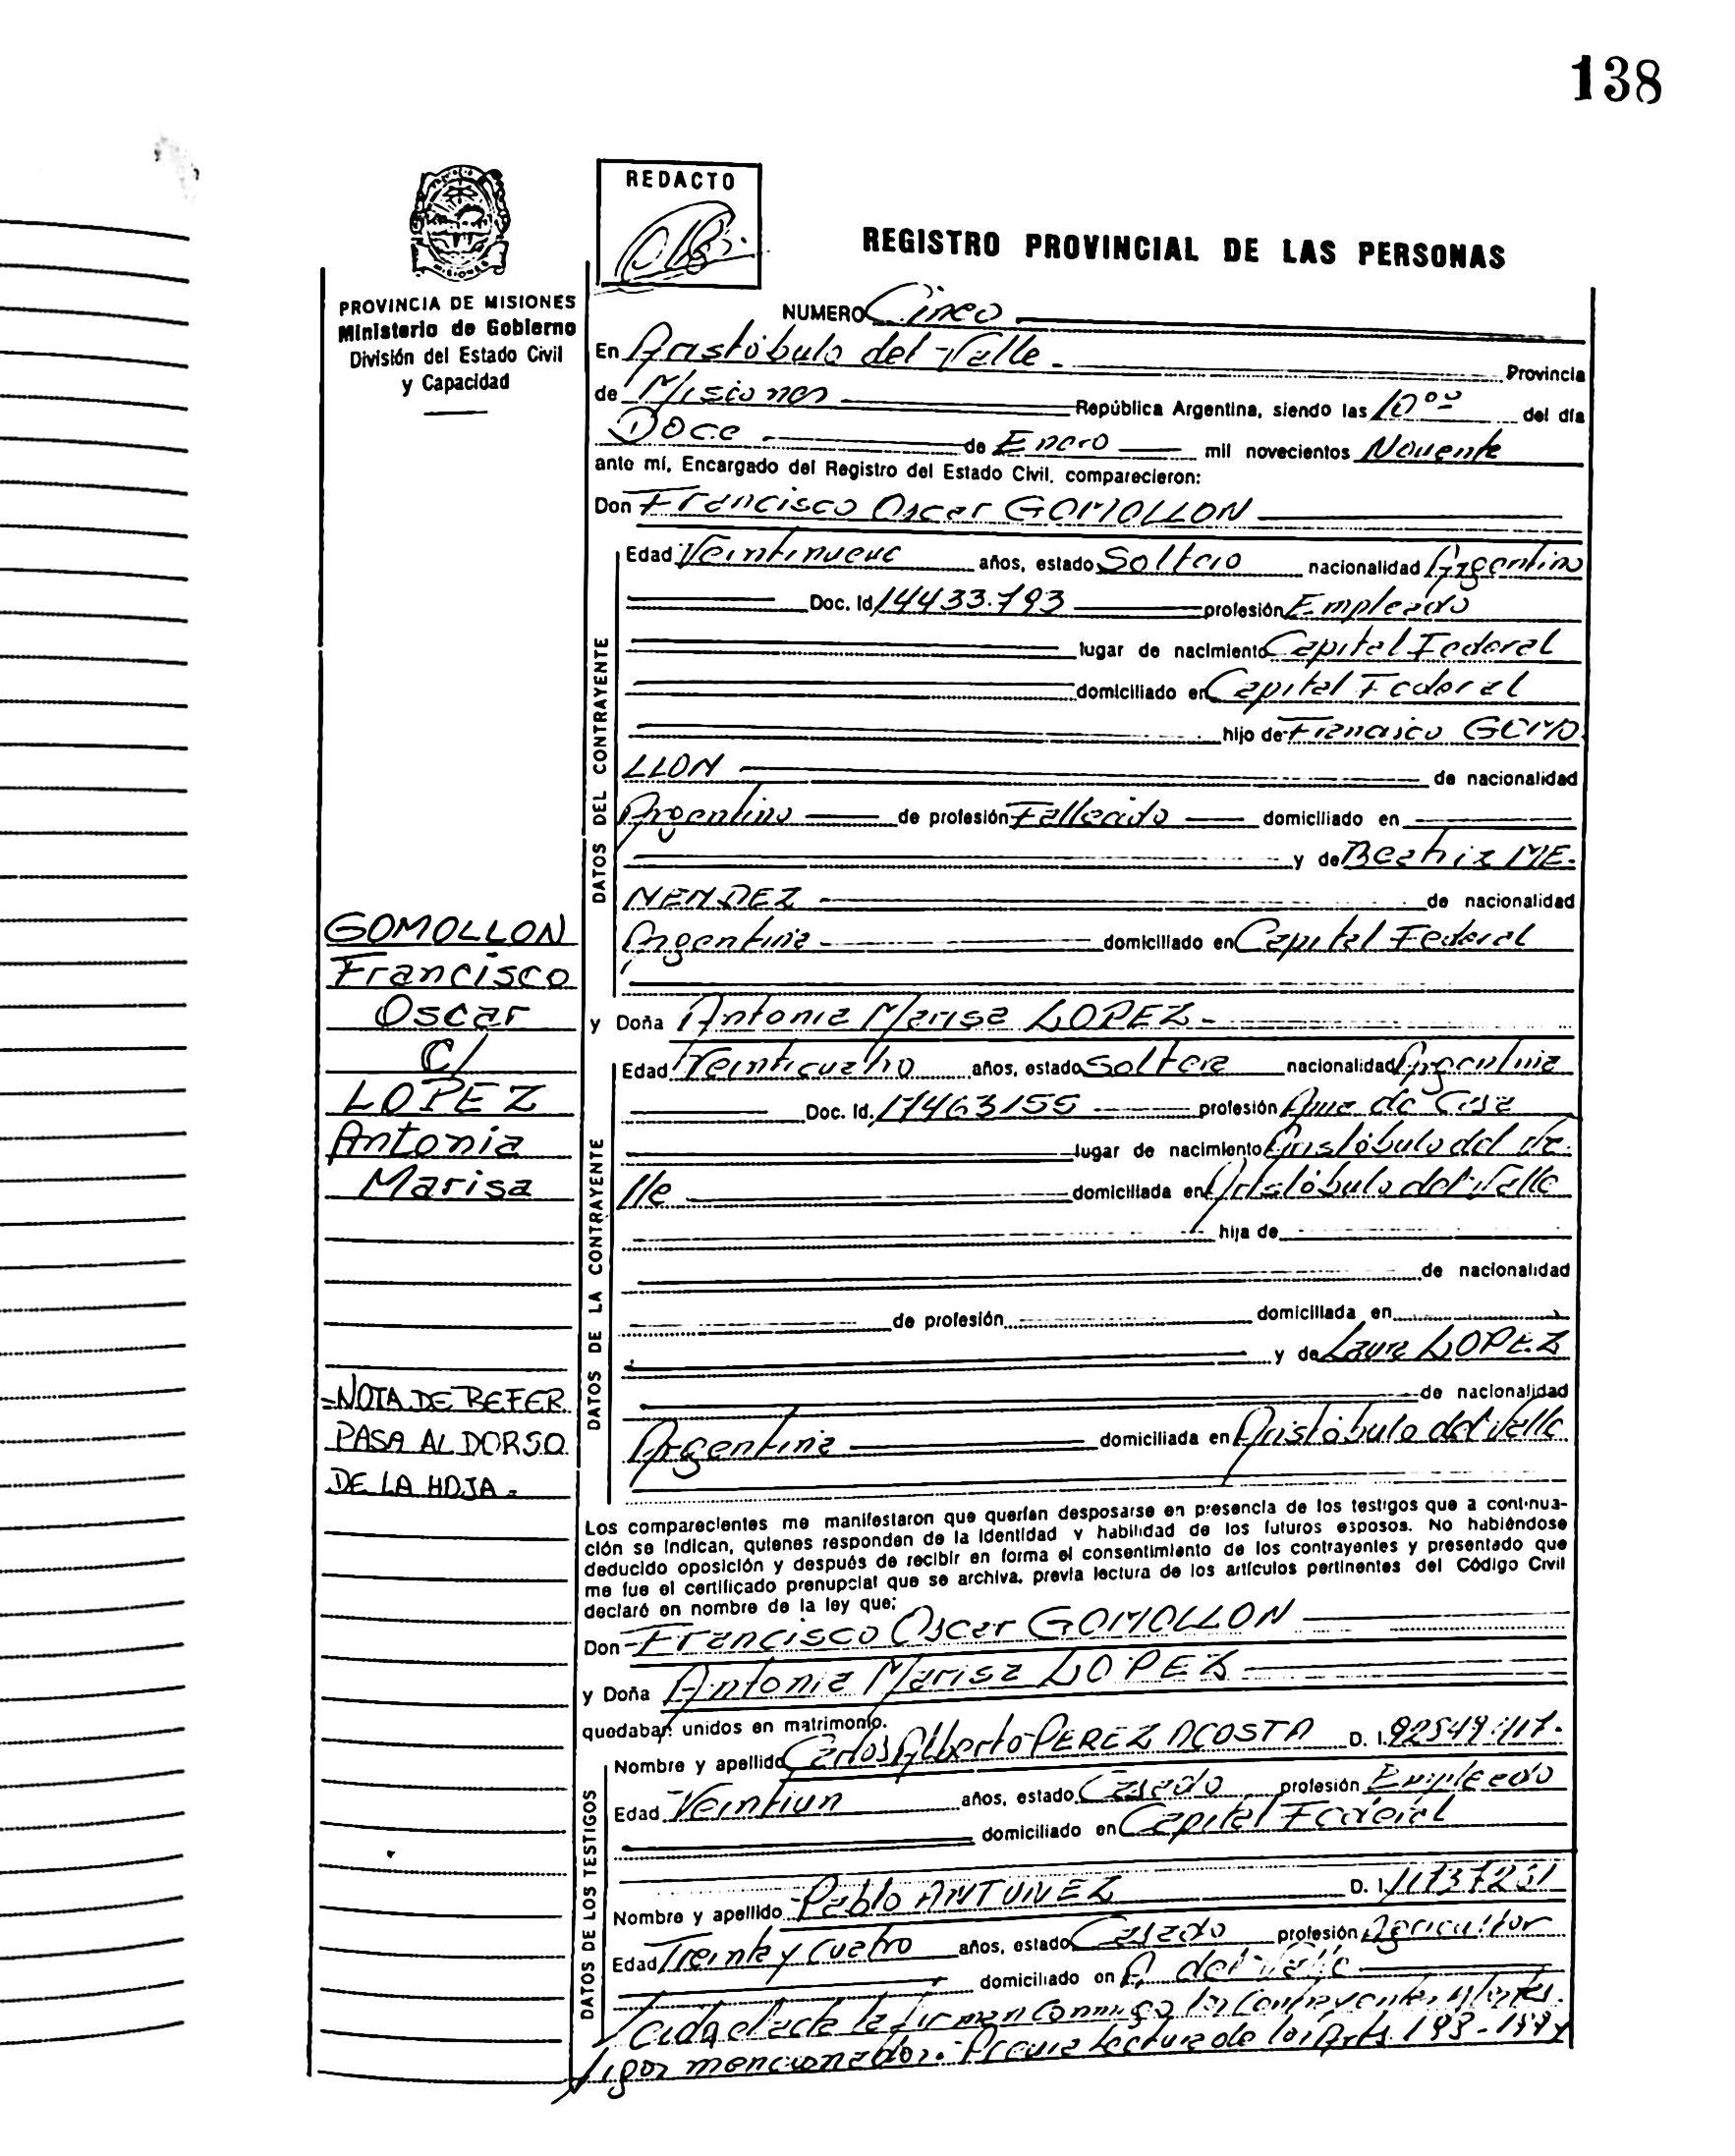 138
REDACTO
REGISTRO PROVINCIAL DE LAS PERSONAS
PROVINCIA DE MISIONES
Ministerio de Gobierno
División del Estado Civil
y Capacidad
NUMERO Cinco
En Aristóbulo del Valle Provincia
de Misiones República Argentina, siendo las 10 00 del día
Doce de Enero mil novecientos Noventa
ante mí, Encargado del Registro del Estado Civil, comparecieron:
Don Francisco Oscar GOMOLLON
DATOS DEL CONTRAYENTE
Edad Veintinueve años, estado Soltero nacionalidad Argentino
Doc. Id. 14433.793 profesión Empleado
lugar de nacimiento Capital Federal
domiciliado en Capital Federal
hijo de Francisco GOMO
LLON de nacionalidad
Argentino de profesión Fallecido domiciliado en
y de Beatriz ME-
NENDEZ de nacionalidad
Argentina domiciliado en Capital Federal
GOMOLLON
Francisco
Oscar
C/
LOPEZ
Antonia
Marisa
y Doña Antonia Marisa LOPEZ
DATOS DE LA CONTRAYENTE
Edad Veinticuatro años, estado Soltera nacionalidad Argentina
Doc. Id. 17463155 profesión Ama de Casa
lugar de nacimiento Aristóbulo del Va-
lle domiciliada en Aristóbulo del Valle
hija de
de nacionalidad
de profesión domiciliada en
y de Laura LOPEZ
de nacionalidad
Argentina domiciliada en Aristóbulo del Valle
=NOTA DE REFER.
PASA AL DORSO
DE LA HOJA.=
Los comparecientes me manifestaron que querían desposarse en presencia de los testigos que a continua-
ción se indican, quienes responden de la identidad y habilidad de los futuros esposos. No habiéndose
deducido oposición y después de recibir en forma el consentimiento de los contrayentes y presentado que
me fue el certificado prenupcial que se archiva, previa lectura de los artículos pertinentes del Código Civil
declaró en nombre de la ley que:
Don Francisco Oscar GOMOLLON
y Doña Antonia Marisa LOPEZ
quedaban unidos en matrimonio.
DATOS DE LOS TESTIGOS
Nombre y apellido Carlos Alberto PEREZ ACOSTA D. I. 92549.117.
Edad Veintiun años, estado Casado profesión Empleado
domiciliado en Capital Federal
Nombre y apellido Pablo ANTUNEZ D. I. 11737231
Edad Treinta y Cuatro años, estado Casado profesión Agricultor
domiciliado en A. del Valle
Leida el acta la firman conmigo los Contrayentes y los tes-
tigos mencionados. Previa Lectura de los Arts. 198-199 y